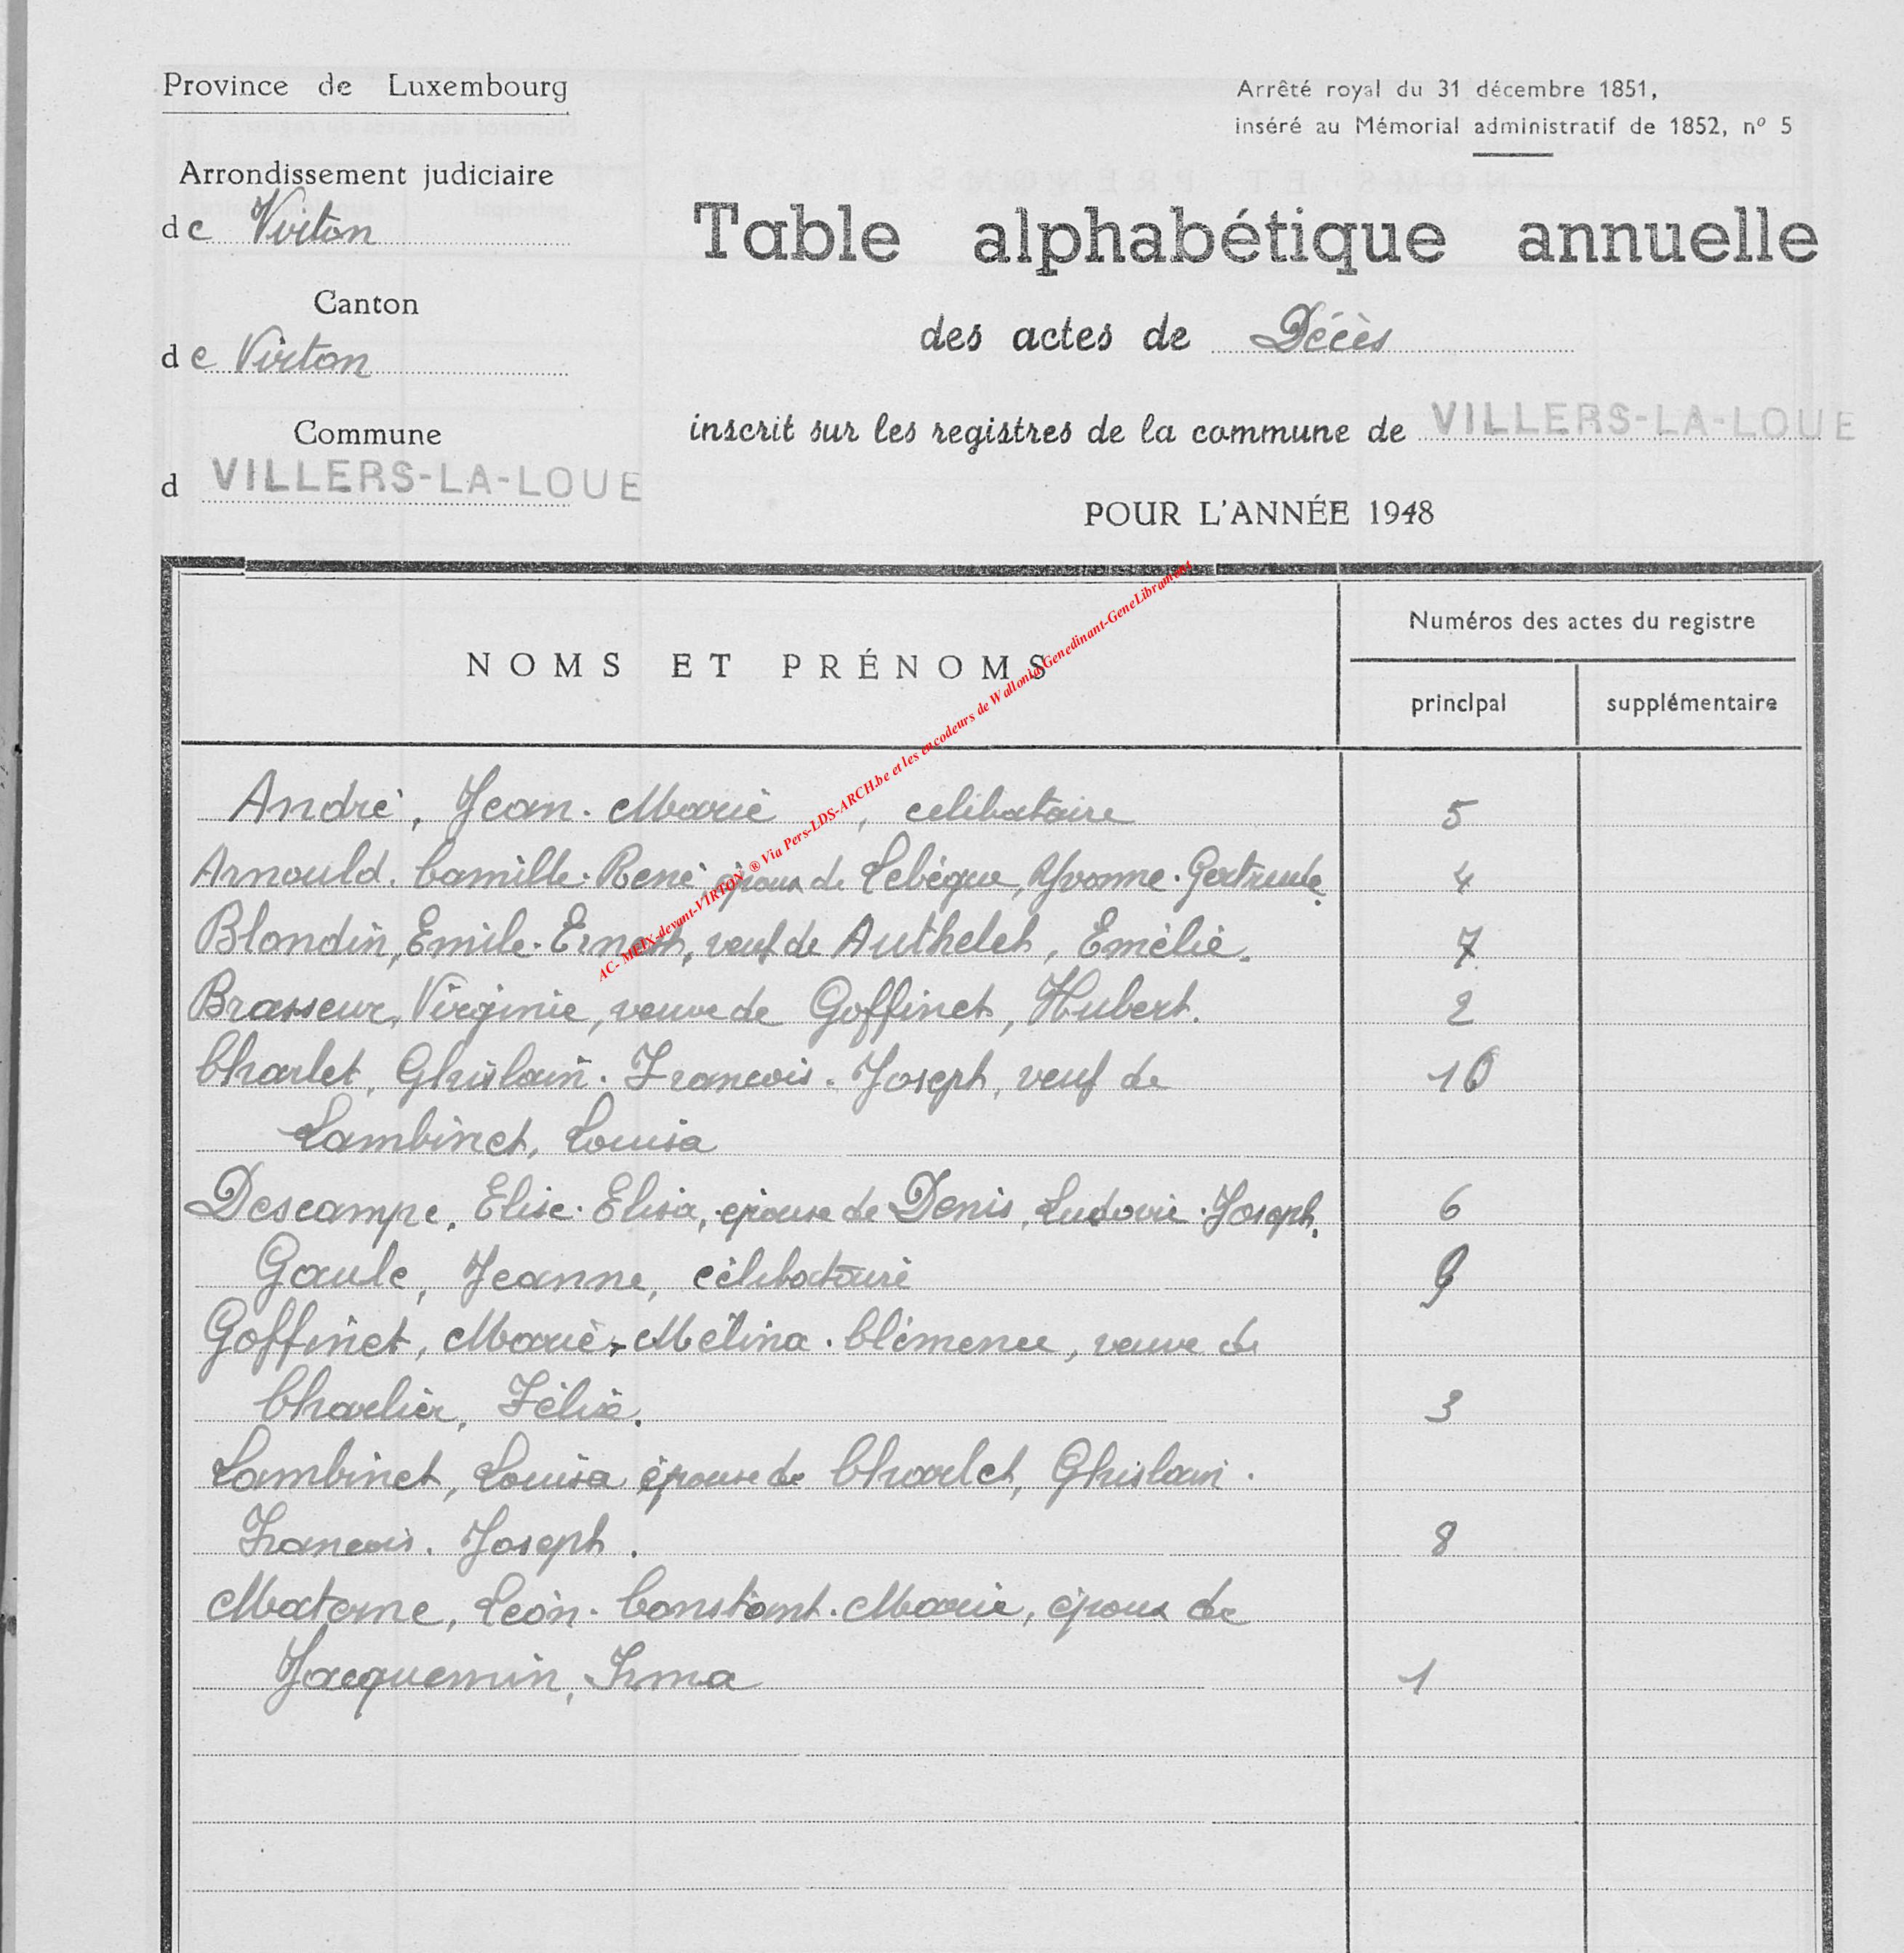 Province de Luxembourg
Arrêté royal du 31 décembre 1851,
inséré au Mémorial administratif de 1852, nº 5
Arrondissement judiciaire
de Virton
Table alphabétique annuelle
Canton
des actes de Décès
de Virton
Commune
inscrit sur les registres de la commune de VILLERS-LA-LOUE
d VILLERS-LA-LOUE
POUR L'ANNÉE 1948
NOMS ET PRÉNOMS
Numéros des actes du registre
principal supplémentaire
AC- MEIX-devant-VIRTON ® Via Pers-LDS-ARCH.be et les encodeurs de Wallonia-Genedinant-GeneLibramont
André, Jean-Marie, celibataire 5
Arnould. Camille-René, époux de Lebègue, Yvonne-Gertrude. 4
Blondin, Emile-Ernest, veuf de Authelet, Emélie. 7
Brasseur, Virginie, veuve de Goffinet, Hubert. 2
Charlet, Ghislain-Francois-Joseph, veuf de 10
Lambinet, Louisa
Descampe, Elise-Elisa, épouse de Denis, Ludovic-Joseph. 6
Gaule, Jeanne, célibataire 9
Goffinet, Marie-Mélina-Clémence, veuve de
Charlier, Félix. 3
Lambinet, Louisa épouse de Charlet, Ghislain-
Francois-Joseph. 8
Materne, Léon-Constant-Marie, époux de
Jacquemin, Irma 1